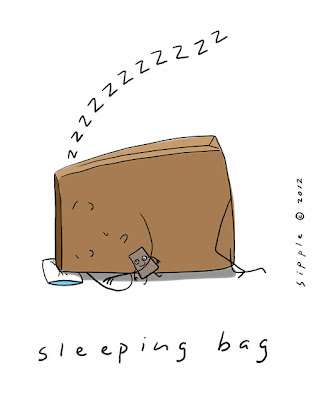 zzzzzzzzzzzz
sleeping bag
sipple © 2012